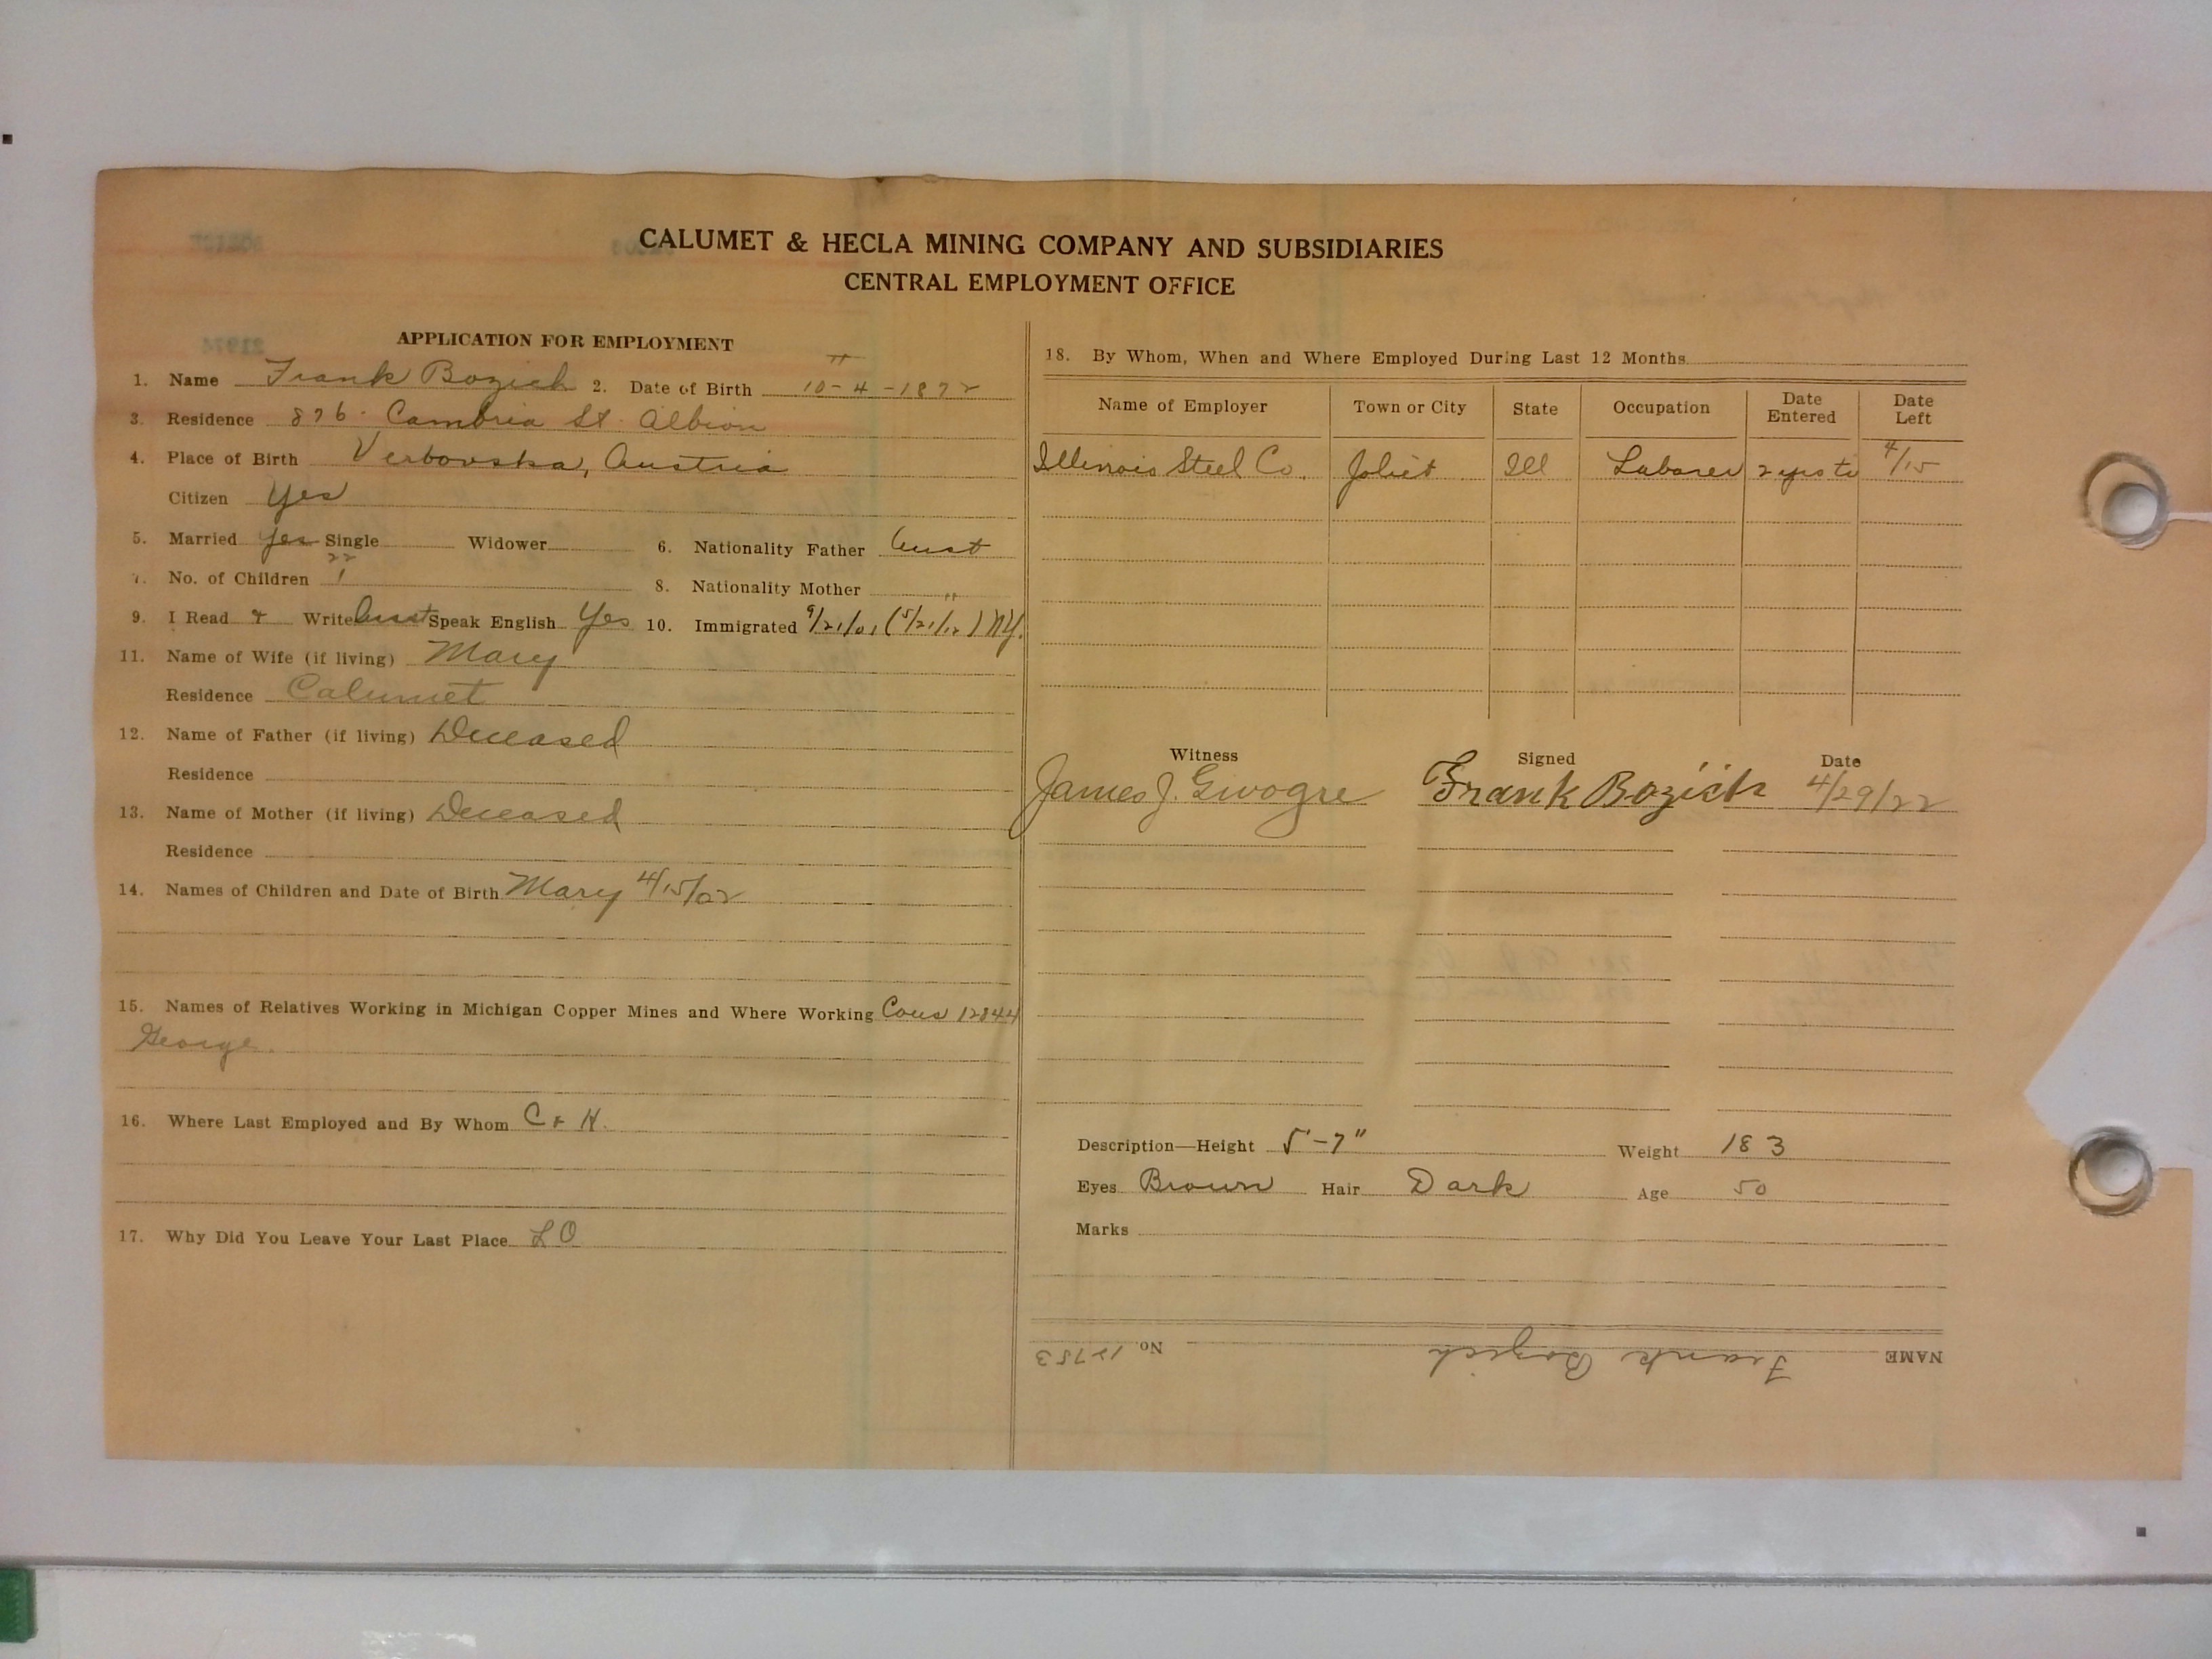 CALUMET & HECLA MINING COMPANY AND SUBSIDIARIES
CENTRAL EMPLOYMENT OFFICE
APPLICATION FOR EMPLOYMENT
1. Name Frank Bozich 2. Date of Birth 10-4-1872
3. Residence 876 Cambria St. Albion
4. Place of Birth Verbovska, Austria
Citizen Yes
5. Married Yes Single Widower 6. Nationality Father Aust
22
7. No. of Children 1 8. Nationality Mother "
9. I Read & Write Aust Speak English Yes 10. Immigrated 9/21/01 (5/21/12) NY.
11. Name of Wife (if living) Mary
Residence Calumet
12. Name of Father (if living) Deceased
Residence
13. Name of Mother (if living) Deceased
Residence
14. Names of Children and Date of Birth Mary 4/15/02
15. Names of Relatives Working in Michigan Copper Mines and Where Working Cous 12844
George.
16. Where Last Employed and By Whom C & H.
17. Why Did You Leave Your Last Place LO
18. By Whom, When and Where Employed During Last 12 Months
Name of Employer Town or City State Occupation Date Entered Date Left
Illinois Steel Co. Joliet Ill Laborer 2 yrs to 4/15
Witness Signed Date
James J. Frank Bozich 4/29/22
Description—Height 5'-7" Weight 183
Eyes Brown Hair Dark Age 50
Marks
NAME Frank Bozich No. 12753